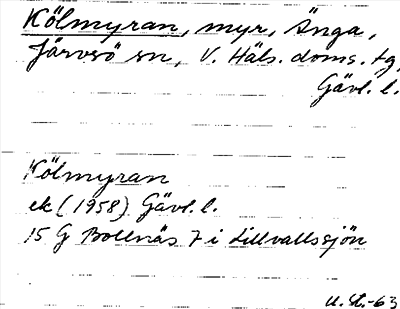 Kölmyran, myr, Änga,
Järvsö sn, V. Häls. doms. tg,
Gävl. l.
Kölmyran
ek (1958) Gävl. l.
15 G Bollnäs 7 i Lillvallssjön
U. St.-63